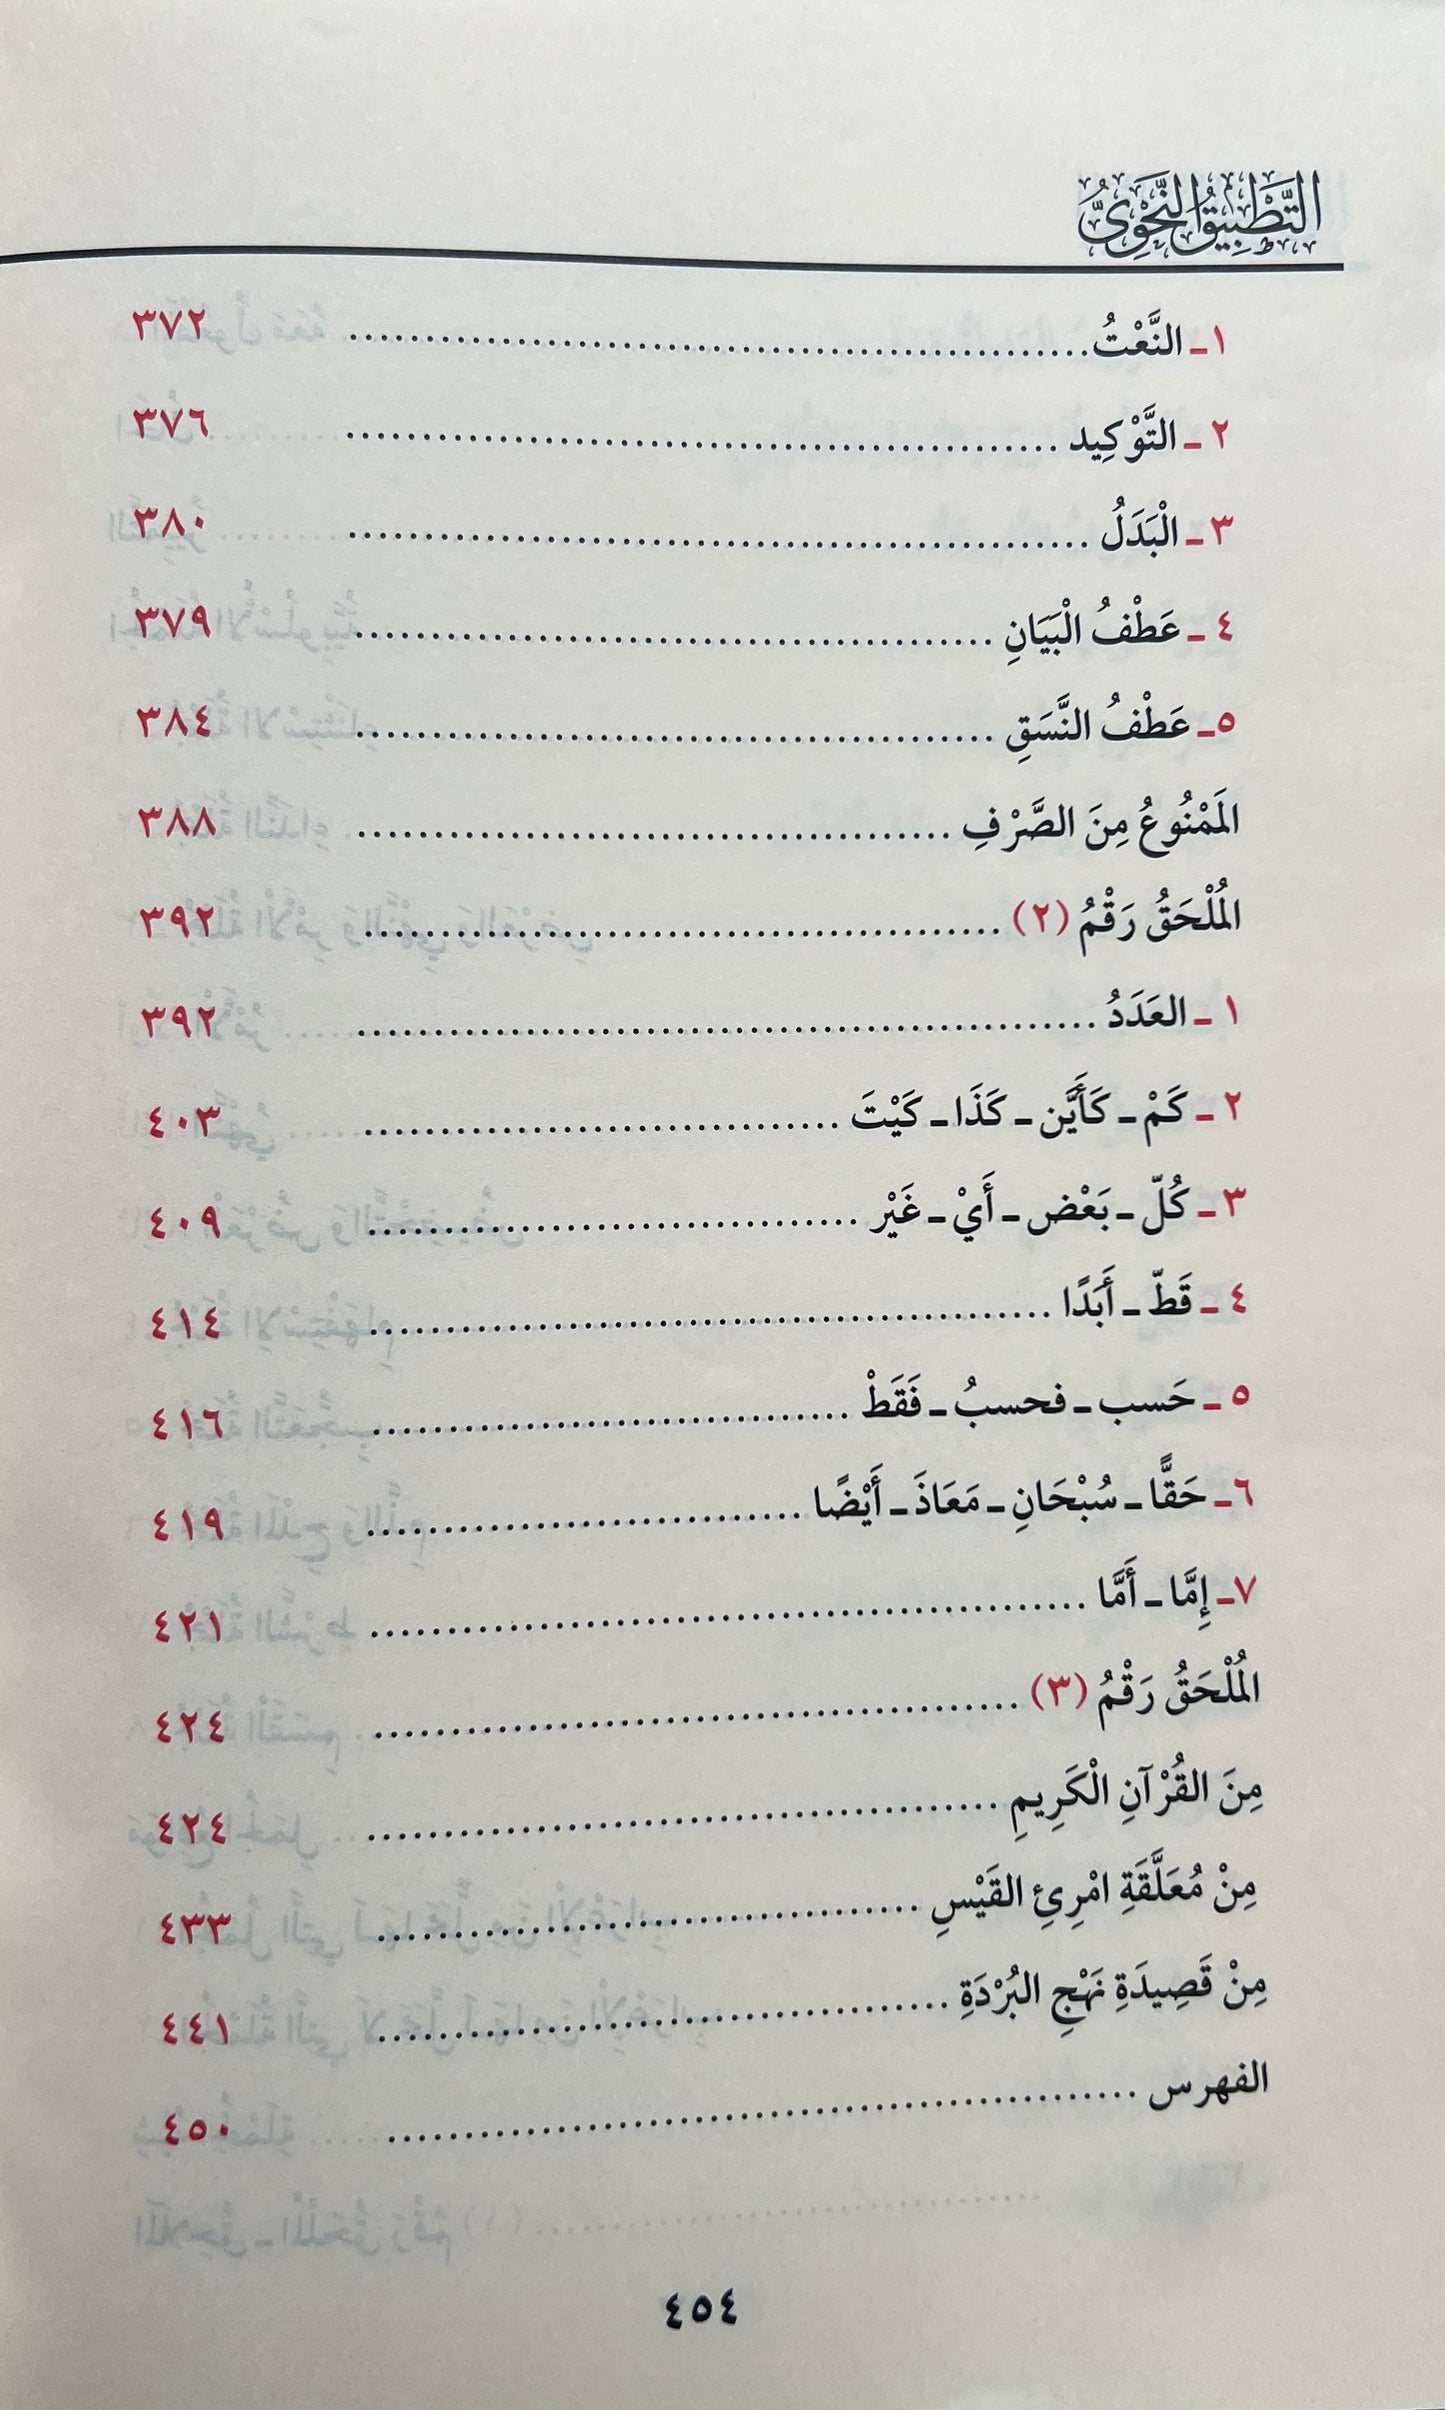 التَّطْبِيقُ النَّحْوِيُّ
١ـ النَّعْتُ .......... ٣٧٢
٢ ـ التَّوْكِيد .......... ٣٧٦
٣ ـ الْبَدَلُ .......... ٣٨٠
٤ ـ عَطْفُ الْبَيَانِ .......... ٣٧٩
٥ـ عَطْفُ النَّسَقِ .......... ٣٨٤
المَمْنُوعُ مِنَ الصَّرْفِ .......... ٣٨٨
المُلْحَقُ رَقْمُ (٢) .......... ٣٩٢
١ ـ العَدَدُ .......... ٣٩٢
٢ ـ كَمْ ـ كَأَيَّن ـ كَذَا ـ كَيْتَ .......... ٤٠٣
٣ ـ كُلّ ـ بَعْض ـ أَيْ ـ غَيْر .......... ٤٠٩
٤ ـ قَطّ ـ أَبَدًا .......... ٤١٤
٥ ـ حَسب ـ فحسبُ ـ فَقَطْ .......... ٤١٦
٦ـ حَقًّا ـ سُبْحَانِ ـ مَعَاذَ ـ أَيْضًا .......... ٤١٩
٧ـ إِمَّا ـ أَمَّا .......... ٤٢١
المُلْحَقُ رَقْمُ (٣) .......... ٤٢٤
مِنَ القُرْآنِ الْكَرِيمِ .......... ٤٢٤
مِنْ مُعَلَّقَةِ امْرِئِ القَيْسِ .......... ٤٣٣
مِنْ قَصِيدَةِ نَهْجِ البُرْدَةِ .......... ٤٤١
الفهرس .......... ٤٥٠
٤٥٤